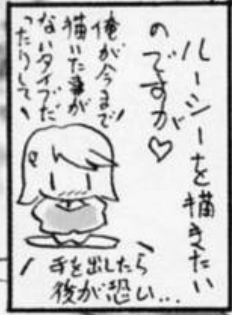 ルーシーを描きたい
のですが♡
俺が今まで
描いた事が
ないタイプだ
ったりして、
手を出したら
後が恐い…